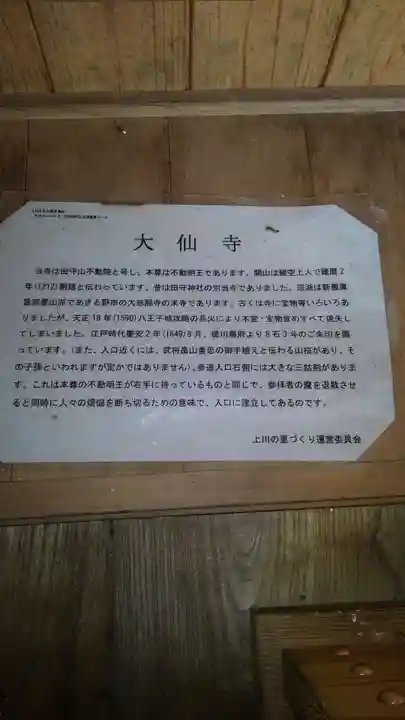 大仙寺
当寺は田守山不動院と号し、本尊は不動明王であります。開山は頓空上人で建暦2
年(1212)開基と伝わっています。昔は田守神社の別当寺でありました。宗派は新義真
言宗豊山派であきる野市の大悲願寺の末寺であります。古くは寺に宝物等いろいろあ
りましたが、天正18年(1590)八王子城攻略の兵火により本堂・宝物含めすべて焼失し
てしまいました。江戸時代慶安2年(1649)8月、徳川幕府より8石3斗のご朱印を賜
っています。(また、入口近くには、武将畠山重忠の御手植えと伝わる山桜があり、そ
の子孫といわれますが定かではありません)。参道入口右側には大きな三鈷剣がありま
す。これは本尊の不動明王が右手に持っているものと同じで、参拝者の魔を退散させ
ると同時に人々の煩悩を断ち切るための意味で、入口に建立してあるのです。
上川の里づくり運営委員会